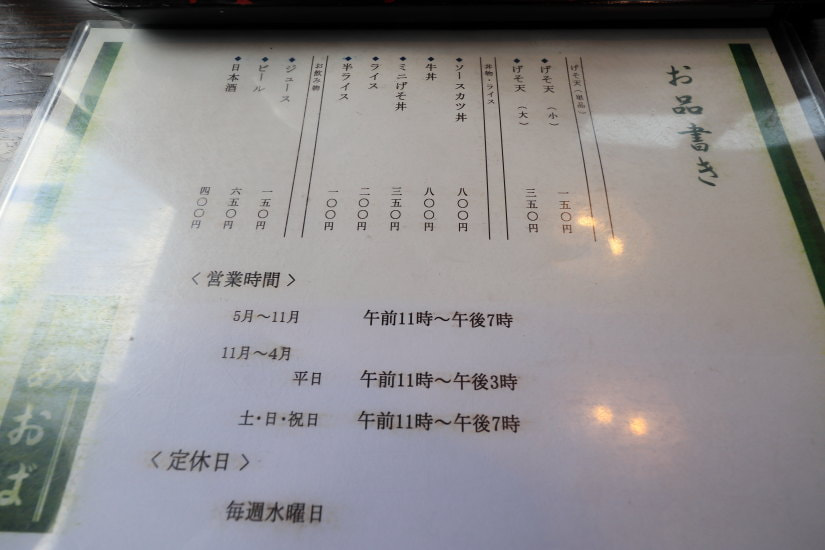 お品書き
げそ天（単品）
◆げそ天（小） 一五〇円
◆げそ天（大） 三五〇円
丼物・ライス
◆ソースカツ丼 八〇〇円
◆牛丼 八〇〇円
◆ミニげそ丼 三五〇円
◆ライス 二〇〇円
◆半ライス 一〇〇円
お飲み物
◆ジュース 一五〇円
◆ビール 六五〇円
◆日本酒 四〇〇円
〈営業時間〉
5月～11月 午前11時～午後7時
11月～4月
平日 午前11時～午後3時
土・日・祝日 午前11時～午後7時
〈定休日〉
毎週水曜日
おおば